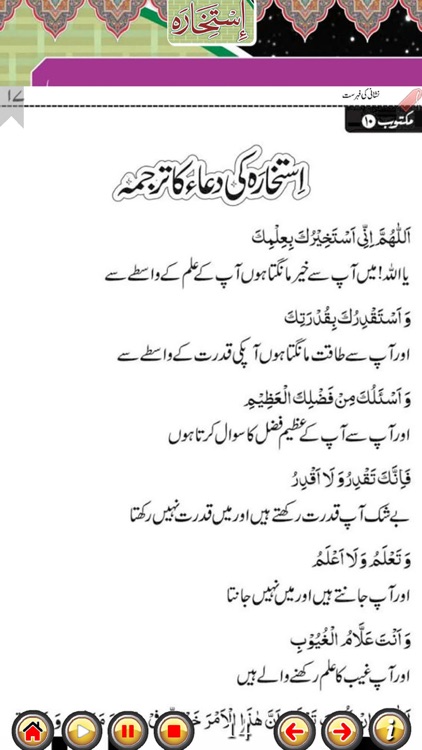 إستخاره
١٧
نشانی کی فہرست
مکتوب ١٠
اِستخارہ کی دعاء کا ترجمہ
اَللّٰهُمَّ اِنِّیْ اَسْتَخِيْرُكَ بِعِلْمِكَ
یا اللہ! میں آپ سے خیر مانگتا ہوں آپ کے علم کے واسطے سے
وَ اَسْتَقْدِرُكَ بِقُدْرَتِكَ
اور آپ سے طاقت مانگتا ہوں آپکی قدرت کے واسطے سے
وَ اَسْئَلُكَ مِنْ فَضْلِكَ الْعَظِيْمِ
اور آپ سے آپ کے عظیم فضل کا سوال کرتا ہوں
فَاِنَّكَ تَقْدِرُ وَ لَا اَقْدِرُ
بے شک آپ قدرت رکھتے ہیں اور میں قدرت نہیں رکھتا
وَ تَعْلَمُ وَ لَا اَعْلَمُ
اور آپ جانتے ہیں اور میں نہیں جانتا
وَ اَنْتَ عَلَّامُ الْغُيُوْبِ
اور آپ غیب کا علم رکھنے والے ہیں
هٰذَا الْاَمْرَ
14
i